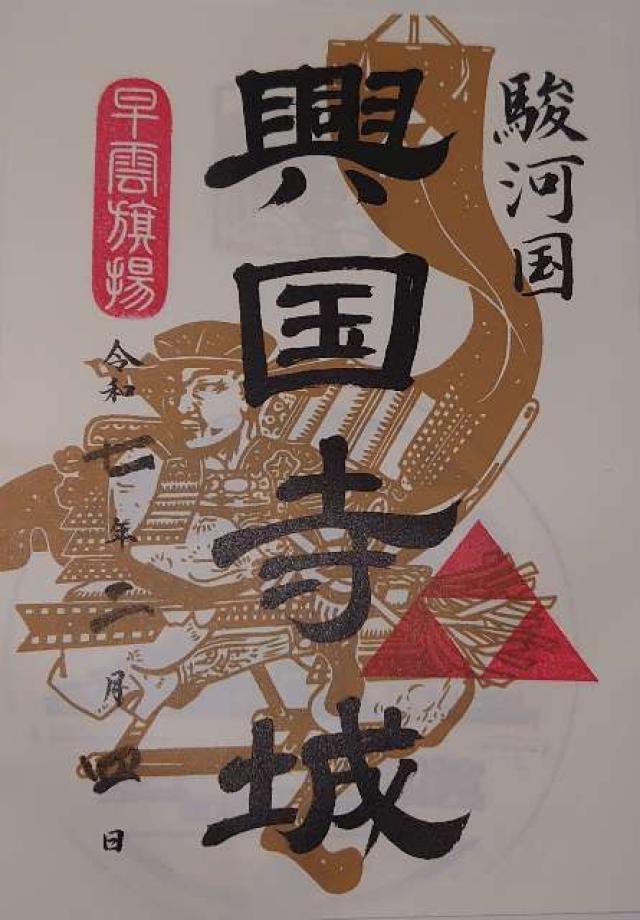 駿河国
興国寺城
早雲旗揚
令和七年二月四日